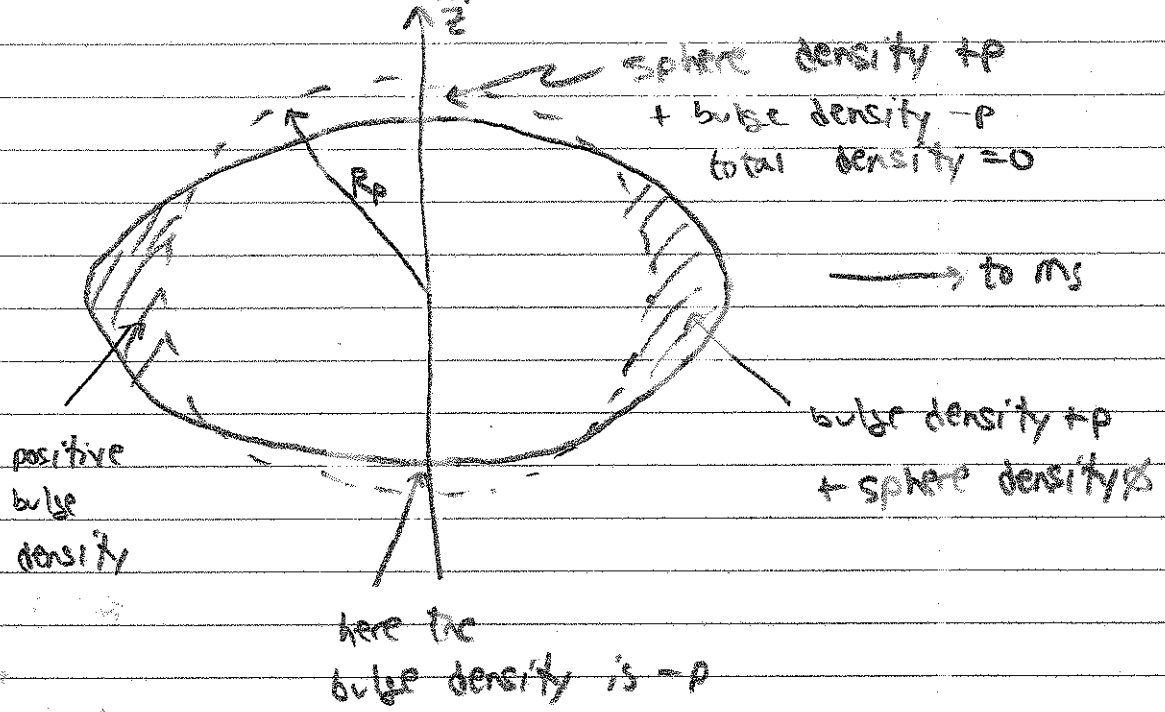 z
sphere density +ρ
+ bulge density -ρ
total density = 0
Rp
→ to ms
bulge density +ρ
+ sphere density
positive
bulge
density
here the
bulge density is -ρ